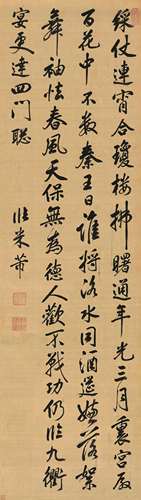 綵仗連宵合瓊樓拂曙通年光三月裏宮殿
百花中不數秦王日誰將洛水同酒筵嫌落絮
舞袖怯春風天保無為德人歡不戰功仍臨九衢
宴更達四門聰 臨米芾